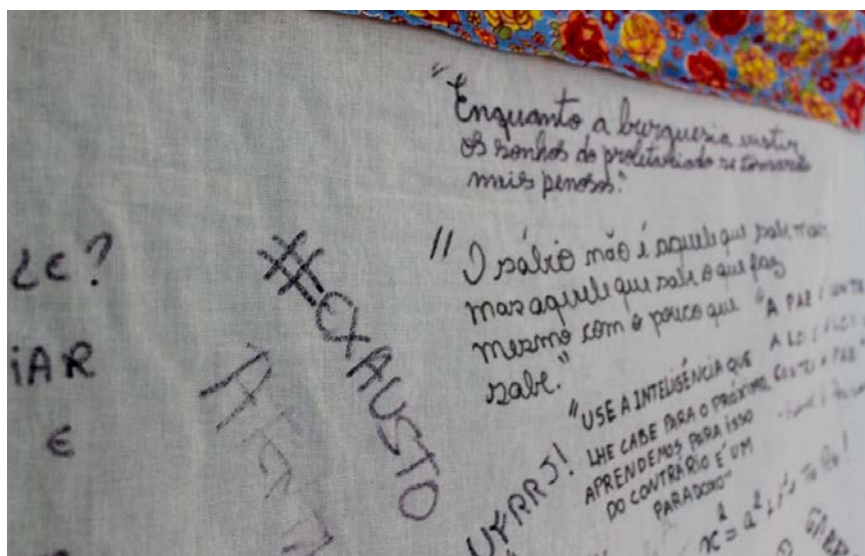 "Enquanto a burguesia existir
os sonhos do proletariado se tornarão
mais penosos."
"O sábio não é aquele que sabe mais,
mas aquele que sabe o que faz
mesmo com o pouco que
sabe."
LE?
IAR
E
#EXAUSTO
"USE A INTELIGÊNCIA QUE
LHE CABE PARA O PRÓXIMO
APRENDEMOS PARA ISSO
DO CONTRÁRIO É UM
PARADOXO"
"A PAZ
UFRRJ!